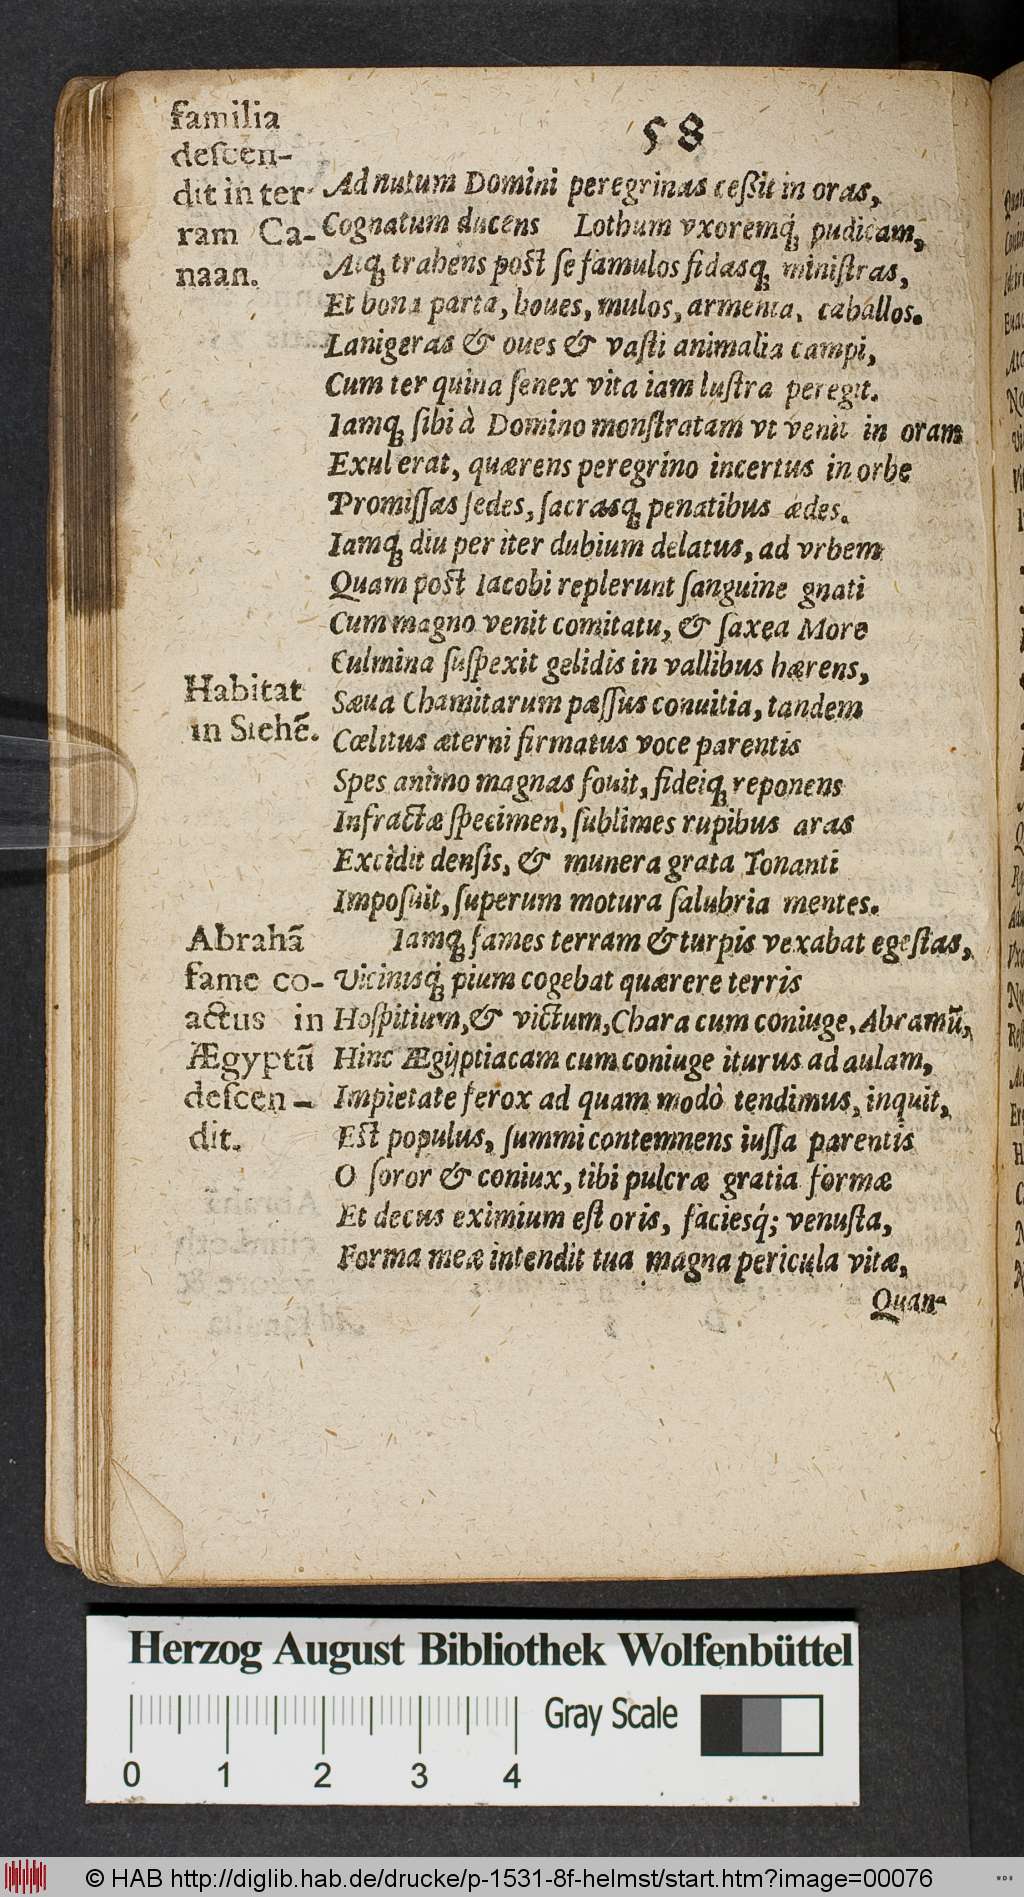 58
familia
deſcen-
dit in ter
ram Ca-
naan.
Ad nutum Domini peregrinas ceßit in oras,
Cognatum ducens Lothum vxoremq́ꝫ pudicam,
Atqꝫ trahens poſt ſe famulos fidasqꝫ miniſtras,
Et bona parta, boues, mulos, armenta, caballos.
Lanigeras & oues & vaſti animalia campi,
Cum ter quina ſenex vita iam luſtra peregit.
Iamqꝫ ſibi à Domino monſtratam vt venit in oram
Exul erat, quærens peregrino incertus in orbe
Promiſſas ſedes, ſacrasqꝫ penatibus ædes.
Iamqꝫ diu per iter dubium delatus, ad vrbem
Quam poſt Iacobi replerunt ſanguine gnati
Cum magno venit comitatu, & ſaxea More
Culmina ſuſpexit gelidis in vallibus hærens,
Habitat
in Siehē.
Sæua Chamitarum pæſſus conuitia, tandem
Cœlitus æterni firmatus voce parentis
Spes animo magnas fouit, fideiqꝫ reponens
Infractæ ſpecimen, ſublimes rupibus aras
Excidit denſis, & munera grata Tonanti
Impoſuit, ſuperum motura ſalubria mentes.
Abrahā
fame co-
actus in
Ægyptū
deſcen-
dit.
Iamqꝫ fames terram & turpis vexabat egeſtas,
Vicinisq́ꝫ pium cogebat quærere terris
Hoſpitium, & victum, Chara cum coniuge, Abramū,
Hinc Ægijptiacam cum coniuge iturus ad aulam,
Impietate ferox ad quam modò tendimus, inquit,
Eſt populus, ſummi contemnens iuſſa parentis
O ſoror & coniux, tibi pulcræ gratia formæ
Et decus eximium eſt oris, faciesq́; venuſta,
Forma meæ intendit tua magna pericula vitæ,
Quan-
Herzog August Bibliothek Wolfenbüttel
Gray Scale
0 1 2 3 4
© HAB http://diglib.hab.de/drucke/p-1531-8f-helmst/start.htm?image=00076